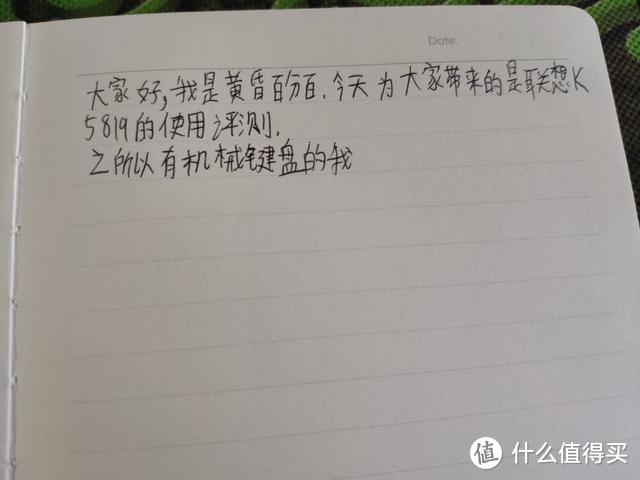 Date:
大家好,我是黄昏百分百.今天为大家带来的是联想K
5819的使用评测.
之所以有机械键盘的我
值 什么值得买